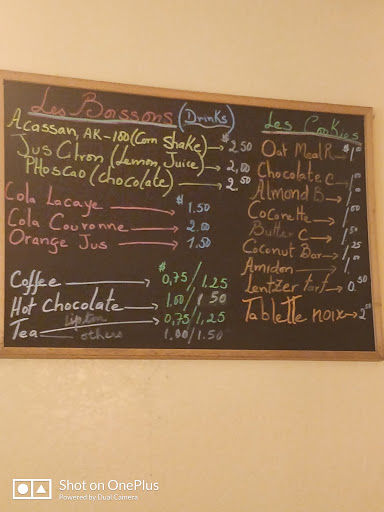 Les Boissons (Drinks)
Acassan, AK-100 (Corn Shake) → $ 2.50
Jus Citron (Lemon Juice) → 2,00
PHoscao (chocolate) → 2.50
Cola Lacaye → $ 1.50
Cola Couronne → 2.00
Orange Jus → 1.50
Coffee → $ 0,75 / 1.25
Hot Chocolate → 1.00 / 1 50
Tea lipton → 0,75 / 1,25
others 1.00 / 1.50
Les Cookies
Oat Meal R → $ 1,00
Chocolate C
Almond B → 1,00
Coconette → 1,00
Butter C → 1,50
Coconut Bar → 1,25
Amidon → 1,00
Lentzer tart → 0.50
Tablette noix →
Shot on OnePlus
Powered by Dual Camera